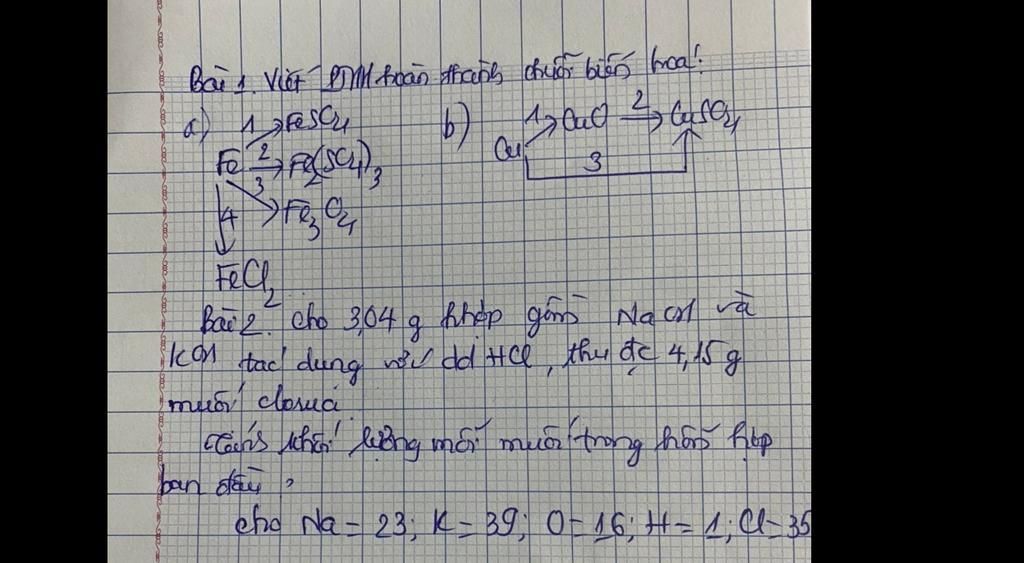 Bài 1. Viết PTHH hoàn thành chuỗi biến hoá:
a) 1 FeSO4 b) 1 CuO 2 CuSO4
Fe 2 Fe2(SO4)3 Cu 3
3
4 Fe3O4
FeCl2
Bài 2. Cho 3,04 g hhợp gồm NaOH và
KOH tác dụng với dd HCl, thu đc 4,15g
muối clorua.
Tính khối lượng mỗi muối trong hỗn hợp
ban đầu ?
cho Na = 23; K = 39; O = 16; H = 1; Cl = 35